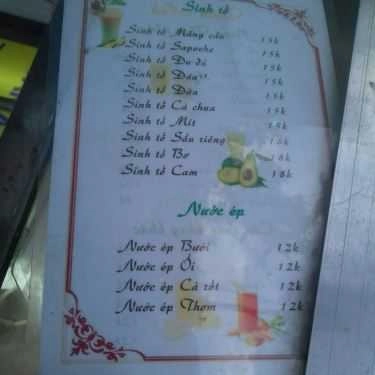 Sinh tố
Sinh tố Mãng cầu 15k
Sinh tố Sapoche 15k
Sinh tố Đu đủ 15k
Sinh tố Dâu 15k
Sinh tố Dừa 15k
Sinh tố Cà chua 15k
Sinh tố Mít 15k
Sinh tố Sầu riêng 18k
Sinh tố Bơ 18k
Sinh tố Cam 18k
Nước ép
Nước ép Bưởi 12k
Nước ép Ổi 12k
Nước ép Cà rốt 12k
Nước ép Thơm 12k